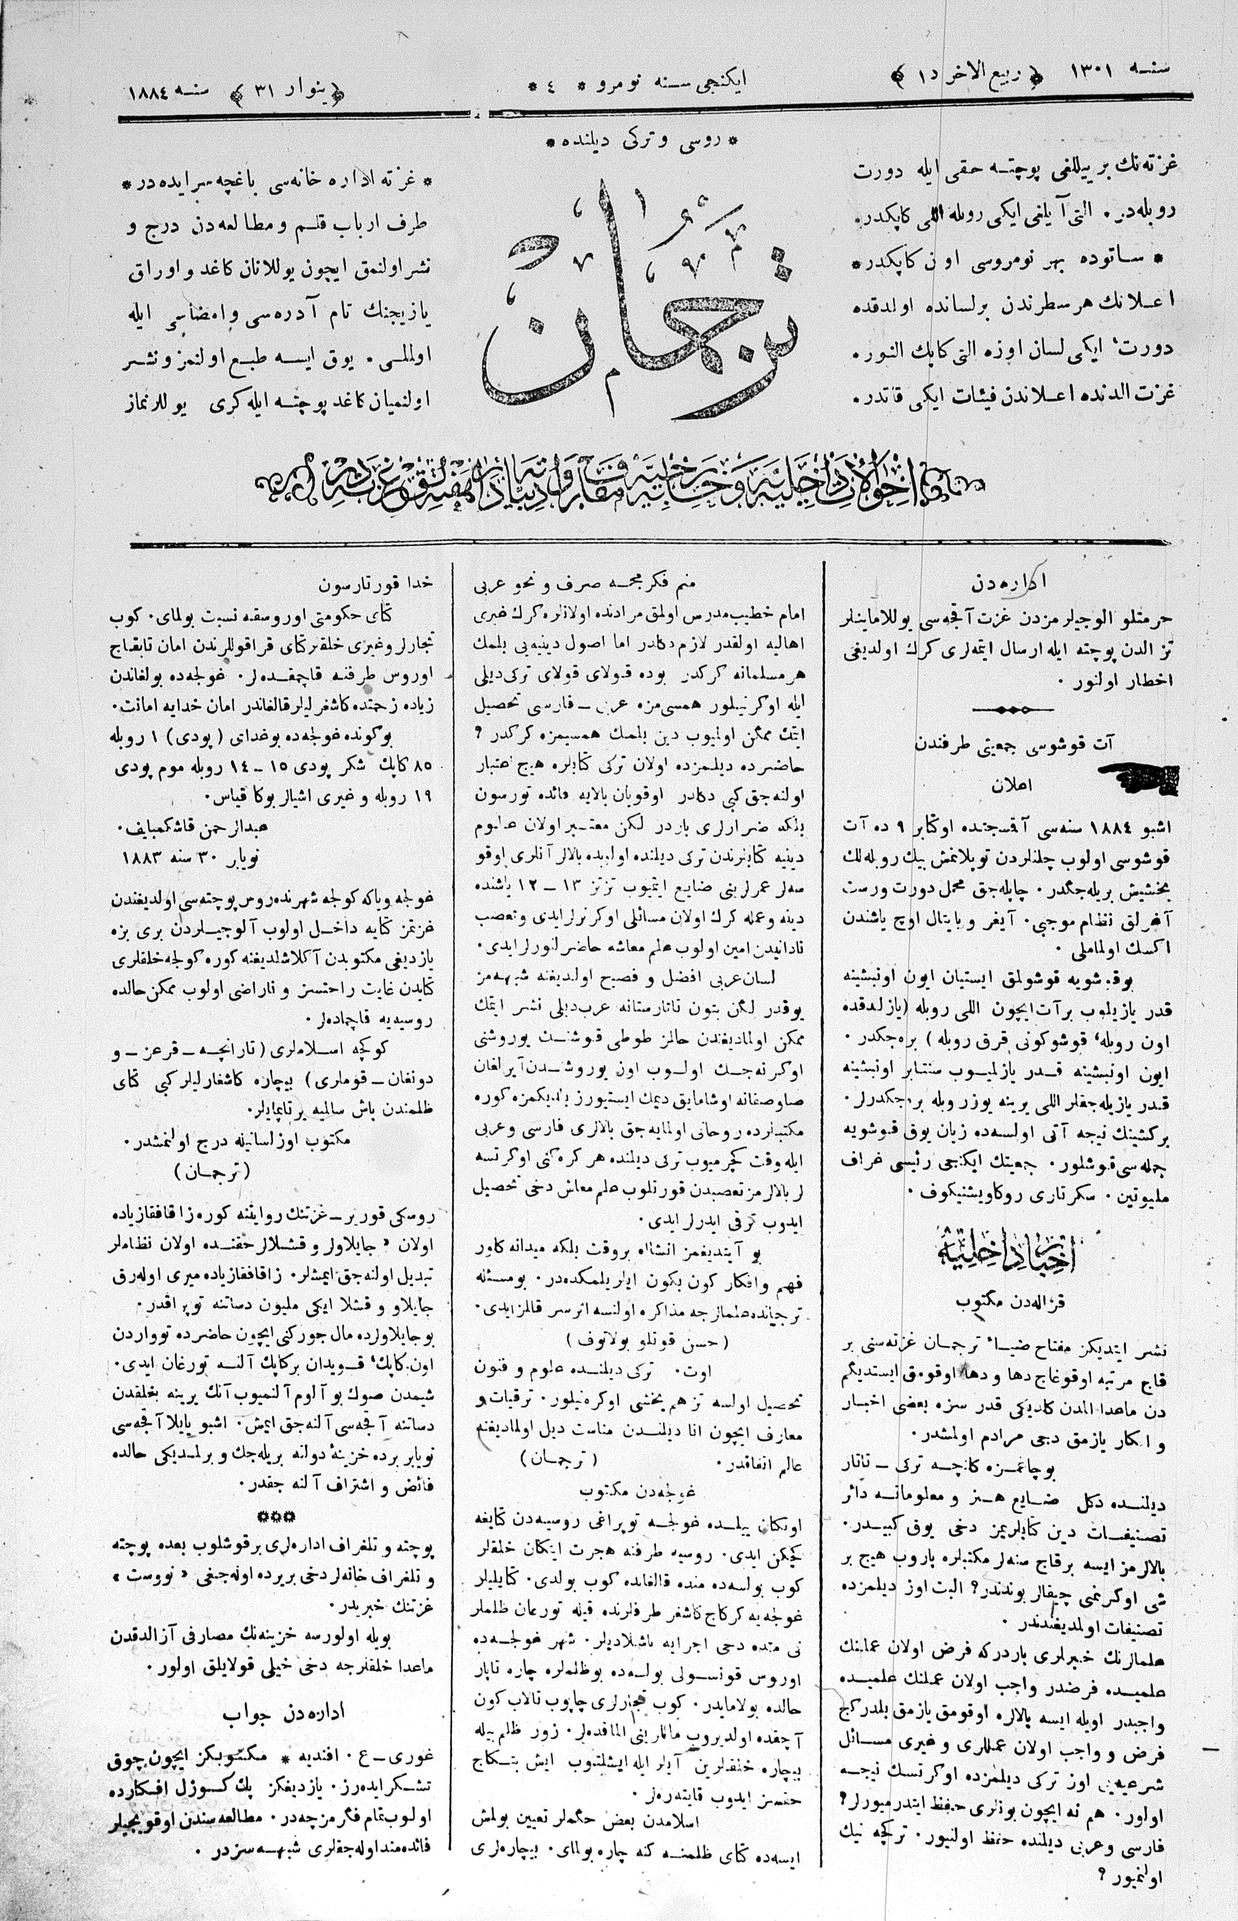 سنه ١٣٠١ ﴿ ربیع الاخر د١ ﴾
ایكنجی سنه نومرو * ٤ *
﴿ ینوار ٣١ ﴾ سنه ١٨٨٤
* روسی و تركی دیلنده *
غزته‌نك بر ییللغی پوچته حقی ایله دورت
روبله‌در. التی آیلغی ایكی روبله اللی كاپكدر.
* ساتوده بهر نومروسی اون كاپكدر *
اعلانك هر سطرندن برلسانده اولدقده
دورت، ایكی لسان اوزه التی كاپك النور.
غزت الدنده اعلاندن فیئات ایكی قاتدر.
ترجمان
* غزته اداره خانه‌سی باغچه‌سرایده‌در *
طرف ارباب قلم و مطالعه‌دن درج و
نشر اولنمق ایچون یوللانان كاغد و اوراق
یازیجنك تام آدره‌سی و امضاسی ایله
اولملی. یوق ایسه طبع اولنمز و نشر
اولنمیان كاغد پوچته ایله كری یوللرنماز
اداره‌دن
حرمتلو الوجیلرمزدن غزت آقچه‌سی یوللاماینلر
تز الدن پوچته ایله ارسال ایتمه‌لری كرك اولدیغی
اخطار اولنور.
آت قوشوسی جمعیتی طرفندن
اعلان
اشبو ١٨٨٤ سنه‌سی آقمسجدده اوكتابر ٩ ده آت
قوشوسی اولوب چلنلردن توپلانمش بیك روبله‌لك
بخشیش بریله‌جكدر. چاپله‌جق محمل دورت ورست
آغرلق نظام موجبی. آیغر و بایتال اوچ یاشندن
اكسك اولماملی.
بوقوشویه قوشولمق ایستیان ایون اونبشینه
قدر یازیلوب برآت ایچون اللی روبله (یازلدقده
اون روبله، قوشوكونی قرق روبله) بره‌جكدر.
ایون اونبشینه قدر یازلمیوب سنتابر اونبشینه
قدر یازیله‌جقلر اللی یرینه یوز روبله بره‌جكدرلر.
بركشینك نیچه آتی اولسه‌ده زیان یوق قوشویه
جمله‌سی قوشلور. جمعیتك ایكنجی رئیسی غراف
ملیوتین. سكرتاری روكاویشنیكوف.
اخبار داخلیه
قزاله‌دن مكتوب
نشر ایتدیكز مفتاح ضیاء ترجمان غزته‌سنی بر
قاچ مرتبه اوقوغاچ دها و دها اوقومق ایستدیكم
دن ماعدا المدن كلدیكی قدر سزه بعضی اخبار
و افكار یازمق دخی مرادم اولمشدر.
بوچاغمزه كلنجه تركی ـ تاتار
دیلنده دكل ضایع هنر و معلوماته دائر
تصنیفات دین كتابلریمز دخی یوق كبیدر.
بالالرمز ایسه برقاچ سنه‌لر مكتبلره باروب هیچ بر
شی اوكرنمی چیقالر بوندندر؟ البت اوز دیلمزده
تصنیفات اولمدیغندندر.
علمازنك خبرلری باردركه فرض اولان عملنك
علمیده فرضدر واجب اولان عملنك علمیده
واجبدر اویله ایسه بالالره اوقومق یازمق بلدركچ
فرض و واجب اولان عمللری و غیری مسائل
شرعیه‌یی اوز تركی دیلمزده اوكرتسك نیچه
اولور. هم نه ایچون بونلری حفظ ایتدرمیورلر؟
فارسی و عربی دیلنده حفظ اولنیور. تركچه نیك
اولنمیور؟
منم فكرمجه صرف و نحو عربی
امام خطیب مدرس اولمق مرادنده اولانلره كرك غیری
اهالیه اولقدر لازم دكلدر اما اصول دینیه‌یی بلمك
هر مسلمانه كركدر بوده قولای قولای تركی دیلی
ایله اوكرنیلور همسی‌مزه عربی ـ فارسی تحصیل
ایتك ممكن اولمیوب دین بلمك همسیمزه كركدر؟
حاضرده دیلمزده اولان تركی كتابلره هیچ اعتبار
اولنه‌جق كبی دكلدر اوقویان بالایه فائده تورسون
بلكه ضرارلری باردر لكن معتبر اولان علوم
دینیه كتابلرندن تركی دیلنده اولبده بالالر آنلری اوقو
سه‌لر عمرلرینی ضایع ایتمیوب تزتز ١٣ ـ ١٢ یاشنده
دینه و عمله كرك اولان مسائلی اوكرنرلرایدی و تعصب
نادانیدن امین اولوب علم معاشه حاضرلنورلرایدی.
لسان عربی افضل و فصیح اولدیغنه شبهه‌مز
یوقدر لكن بتون تاتارستانه عرب دیلی نشر ایتمك
ممكن اولمادیغندن حالمز طوطی قوشنك یوروشنی
اوكرنه‌جك اولوب اون یوروشندن آیرلغان
صاوصغانه اوشامایق دیمك ایستیورز بلدیكمزه كوره
مكتبلرده روحانی اولمایه‌جق بالالری فارسی و عربی
ایله وقت كچرمیوب تركی دیلنده هر كره‌كنی اوكرتسه
لر بالالرمز تعصبدن قورتلوب علم معاش دخی تحصیل
ایدوب ترقی ایدرلر ایدی.
بو آیتدیغمز انشاالله بروقت بلكه میدانه كلور
فهم و افكار كون بكون ایلریلمكده‌در. بومسئله
ترجمانده علمازجه مذاكره اولنسه اثرسز قالمزایدی.
(حسن قوتلو بولاتوف)
اوت. تركی دیلنده علوم و فنون
تحصیل اولسه تز هم یخشی اوكره‌نیلور. ترقیات و
معارف ایچون انا دیلندن مناسب دیل اولمادیغنه
عالم اتفاقدر. (ترجمان)
غولجه‌دن مكتوب
اوتكان ییلده غولجه توپراغی روسیه‌دن كتایغه
كچكن ایدی. روسیه طرفنه هجرت ایتكان خلقلر
كوب بولسه‌ده منده قالغانده كوب بولدی. كتایلیلر
غولجه‌یه كركاچ كاشغر طرفلرنده قیله تورغان ظلملر
نی منده دخی اجرایه باشلادیلر. شهر غولجه‌ده
اوروس قونسولی بولسه‌ده بوظلملره چاره تاپار
حالده بولمایدر. كوب تجارلری چاپوب تالاب كون
آچقده اولدیروب ماللرینی المافده‌لر. زور ظلم بیله
بیچاره خلقلرین آیلر ایله ایشلتوب ایش بتكاچ
حقسز ایدوب قایته‌ره‌لر.
اسلامدن بعض حكملر تعیین بولمش
ایسه‌ده كتای ظلمنه كنه چاره بولمای. بیچاره‌لری
خدا قورتارسون
كتای حكومتی اوروسقه نسبت بولمای. كوب
تجارلر و غیری خلقلر كتای قراقوللرندن امان تابقاچ
اوروس طرفنه قاچمقده‌لر. غولجه‌ده بولغاندن
زیاده زحمتده كاشغرلیلر قالغاندر امان خدایه امانت.
بوكونده غولجه‌ده بوغدای (پودی) ١ روبله
٨٥ كاپك شكر پودی ١٥ ـ ١٤ روبله موم پودی
١٩ روبله و غیری اشیالر بوكا قیاس.
عبدالرحمن قاشكمبایف.
نویابر ٣٠ سنه ١٨٨٣
غولجه ویاكه كولجه شهرنده روس پوچته‌سی اولدیغندن
غزتمز كتایه داخل اولوب آلوجیلردن بری بزه
یازدیغی مكتوبدن آكلاشلدیغنه كوره كولجه خلقلری
كتایدن غایت راحتسز و ناراضی اولوب ممكن حالده
روسیه‌یه قاچماده‌لر.
كولجه اسلاملری (تارانچه ـ قرغز ـ و
دونغان ـ قوملری) بیچاره كاشغارلیلر كبی كتای
ظلمندن باش سالمیه یر تاپمایلر.
مكتوب اوز لسانینه درج اولنمشدر.
(ترجمان)
روسكی قوریر ـ غزتنك روایتنه كوره زاقافقازیاده
اولان « جایلاولر و قشلالر حقنده اولان نظاملر
تبدیل اولنه‌جق ایمشلر. زاقافقازیاده میری اوله‌رق
جایلاو و قشلا ایكی ملیون دساتنه توپراقدر.
بو جایلاولرده مال جوركنی ایچون حاضرده توواردن
اون كاپك، قویدان بركاپك آلنه تورغان ایدی.
شیمدن صوك بو آلوم آلنمیوب آنك یرینه بخلقدن
دساتنه آقچه‌سی آلنه‌جق ایمش. اشبو یایلا آقچه‌سی
نویابر برده خزینۀ دولته بریله‌جك و برلمدیكی حالده
فائض و اشتراف آلنه جقدر.
***
پوچته و تلغراف اداره‌لری برقوشلوب بعده پوچته
و تلغراف خانه‌لر دخی بریرده اوله‌جغی « نووست »
غزتنك خبریدر.
بویله اولورسه خزینه‌نك مصارفی آزالدقدن
ماعدا خلقلرجه دخی خیلی قولایلق اولور.
اداره‌دن جواب
غوری ـ ع. افندیه * مكتوبكز ایچون چوق
تشكر ایده‌رز. یازدیغكز پك كوزل افكارده
اولوب تمام فكرمزچه‌در. مطالعه‌سندن اوقویجیلر
فائده‌مند اوله‌جقلری شبهه‌سزدر.